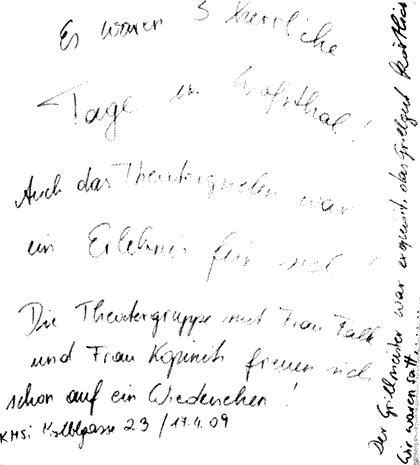 Es waren 3 herrliche
Tage in Wolfsthal!
Auch das Theaterspielen war
ein Erlebnis für sich!
Die Theatergruppe mit Frau Falk
und Frau Kopinits freuen sich
schon auf ein Wiedersehen!
KMSi Kölblgasse 23 / 17.4.09
Der Grillmeister war exquisit, das Grillgut köstlich
Wir waren satt